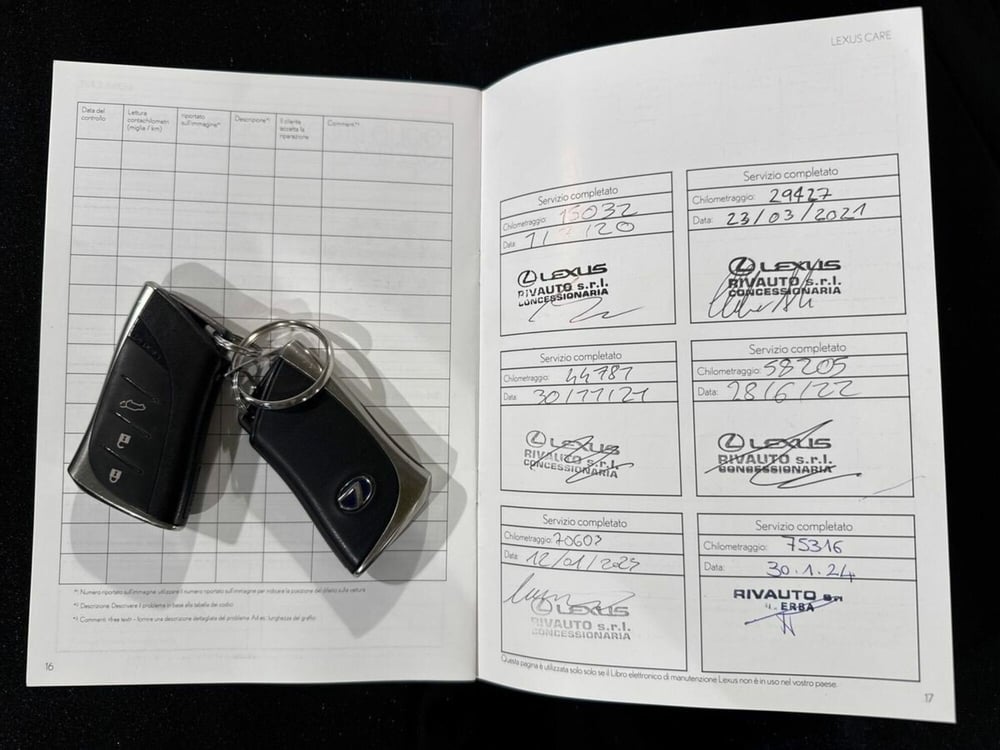 Data del controllo
Lettura contachilometri (miglia / km)
riportato sull'immagine*¹
Descrizione*²
Il cliente accetta la riparazione
Commenti*³
*¹ Numero riportato sull'immagine: utilizzare il numero riportato sull'immagine per indicare la posizione del difetto sulla vettura
*² Descrizione: Descrivere il problema in base alla tabella dei codici
*³ Commenti: «free text» - fornire una descrizione dettagliata del problema. Ad es.: lunghezza del graffio
16
LEXUS CARE
Servizio completato
Chilometraggio: 15032
Data:
LEXUS
RIVAUTO s.r.l.
CONCESSIONARIA
Servizio completato
Chilometraggio: 29427
Data: 23/03/2021
LEXUS
RIVAUTO s.r.l.
CONCESSIONARIA
Servizio completato
Chilometraggio: 44781
Data: 30/11/21
LEXUS
RIVAUTO s.r.l.
CONCESSIONARIA
Servizio completato
Chilometraggio: 58205
Data: 28/6/22
LEXUS
RIVAUTO s.r.l.
CONCESSIONARIA
Servizio completato
Chilometraggio: 70607
Data: 12/01/2023
LEXUS
RIVAUTO s.r.l.
CONCESSIONARIA
Servizio completato
Chilometraggio: 75316
Data: 30.1.24
RIVAUTO srl
ERBA
Questa pagina è utilizzata solo solo se il Libro elettronico di manutenzione Lexus non è in uso nel vostro paese.
17